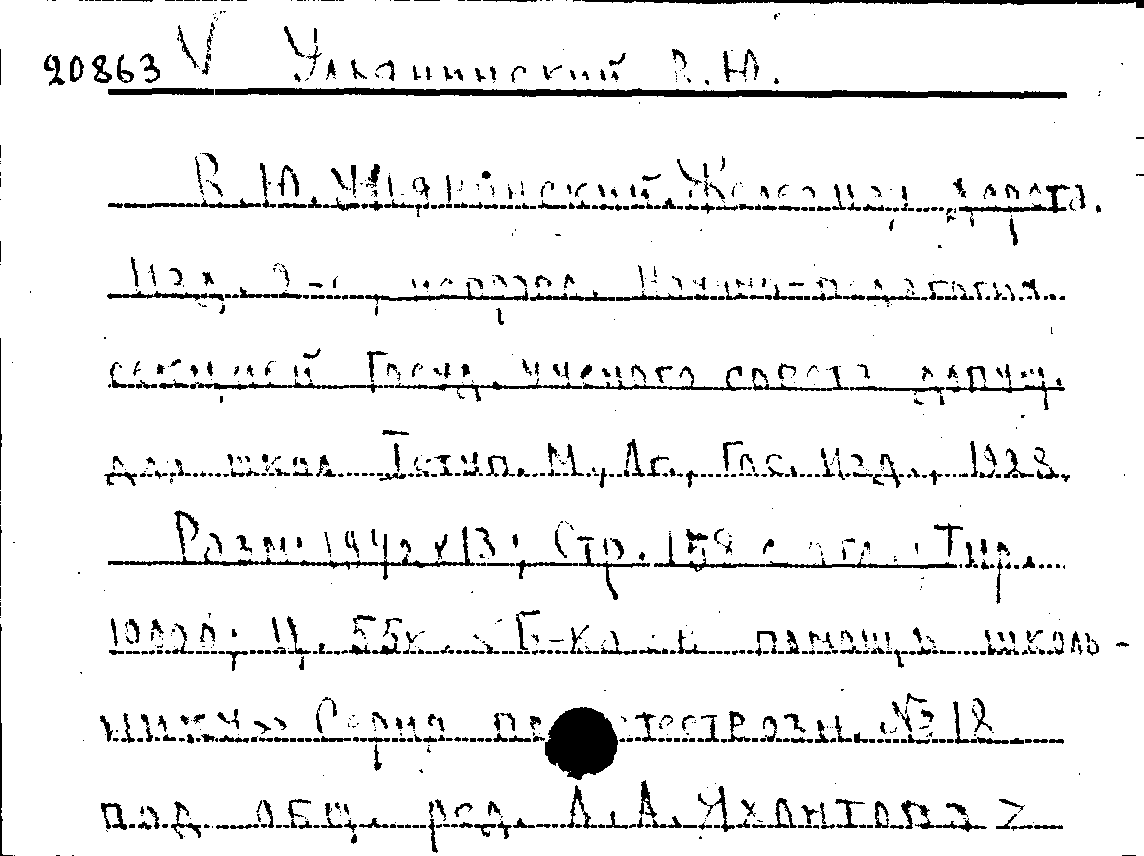 20863 V Ульянинский В.Ю.
В.Ю. Ульянинский. Железная дорога.
Изд. 2-е, исправл. Научно-педагогич.
секцией Госуд. ученого совета допущ.
для школ I ступ. М., Лг., Гос. изд., 1928.
Разм. 19½x13; Стр. 158 с огл.; Тир.
10000; Ц. 55к. <Б-ка «В помощь школь-
нику» Серия по естествозн. №18
под общ. ред. А.А. Яхонтова>